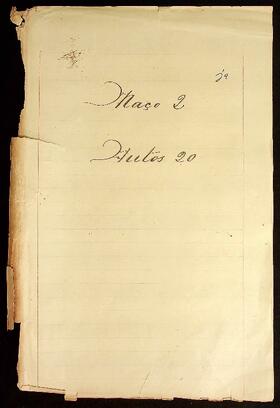 Maço 2
Autos 20